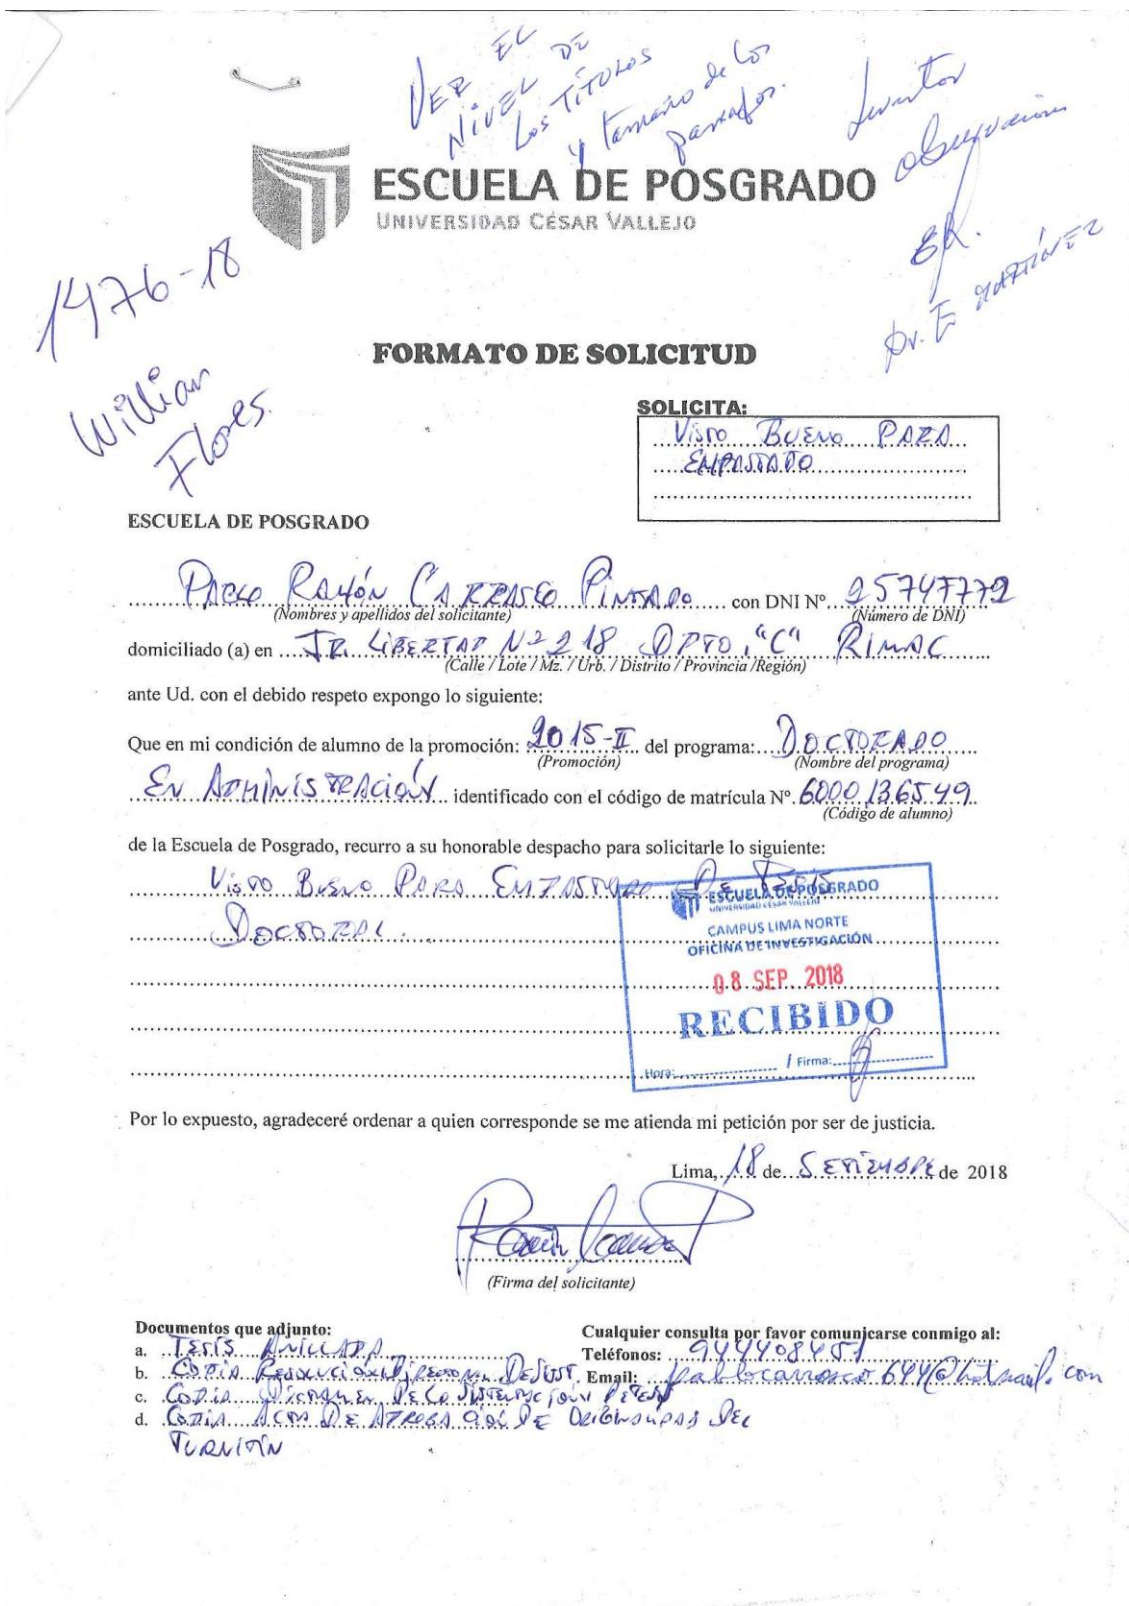 VER EL
NIVEL DE
LOS TÍTULOS
y tamaño de los
parrafos.
Levantar
observaciones
Dr. E. MARTÍNEZ
ESCUELA DE POSGRADO
UNIVERSIDAD CÉSAR VALLEJO
1476-18
Willian
Flores
FORMATO DE SOLICITUD
SOLICITA:
VISTO BUENO PARA
EMPASTADO
ESCUELA DE POSGRADO
PABLO RAMÓN CARRASCO PINTADO con DNI Nº 25747772
(Nombres y apellidos del solicitante) (Número de DNI)
domiciliado (a) en JR. LIBERTAD Nº 218 DPTO. "C" RIMAC
(Calle / Lote / Mz. / Urb. / Distrito / Provincia /Región)
ante Ud. con el debido respeto expongo lo siguiente:
Que en mi condición de alumno de la promoción: 2015-II del programa: DOCTORADO
(Promoción) (Nombre del programa)
EN ADMINISTRACIÓN identificado con el código de matrícula Nº. 6000136549
(Código de alumno)
de la Escuela de Posgrado, recurro a su honorable despacho para solicitarle lo siguiente:
VISTO BUENO PARA EMPASTADO DE TESIS
DOCTORAL.
ESCUELA DE POSGRADO
UNIVERSIDAD CÉSAR VALLEJO
CAMPUS LIMA NORTE
OFICINA DE INVESTIGACIÓN
08 SEP. 2018
RECIBIDO
Hora: / Firma:
Por lo expuesto, agradeceré ordenar a quien corresponde se me atienda mi petición por ser de justicia.
Lima, 18 de SETIEMBRE de 2018
(Firma del solicitante)
Documentos que adjunto:
a. TESIS ANILLADA
b. COPIA RESOLUCIÓN DIRECTORAL DE SUST.
c. COPIA DICTAMEN DE LA SUSTENTACION DE TESIS
d. COPIA ACTA DE APROBACIÓN DE ORIGINALIDAD DEL
TURNITIN
Cualquier consulta por favor comunicarse conmigo al:
Teléfonos: 944408451
Email: pablocarrasco644@hotmail.com